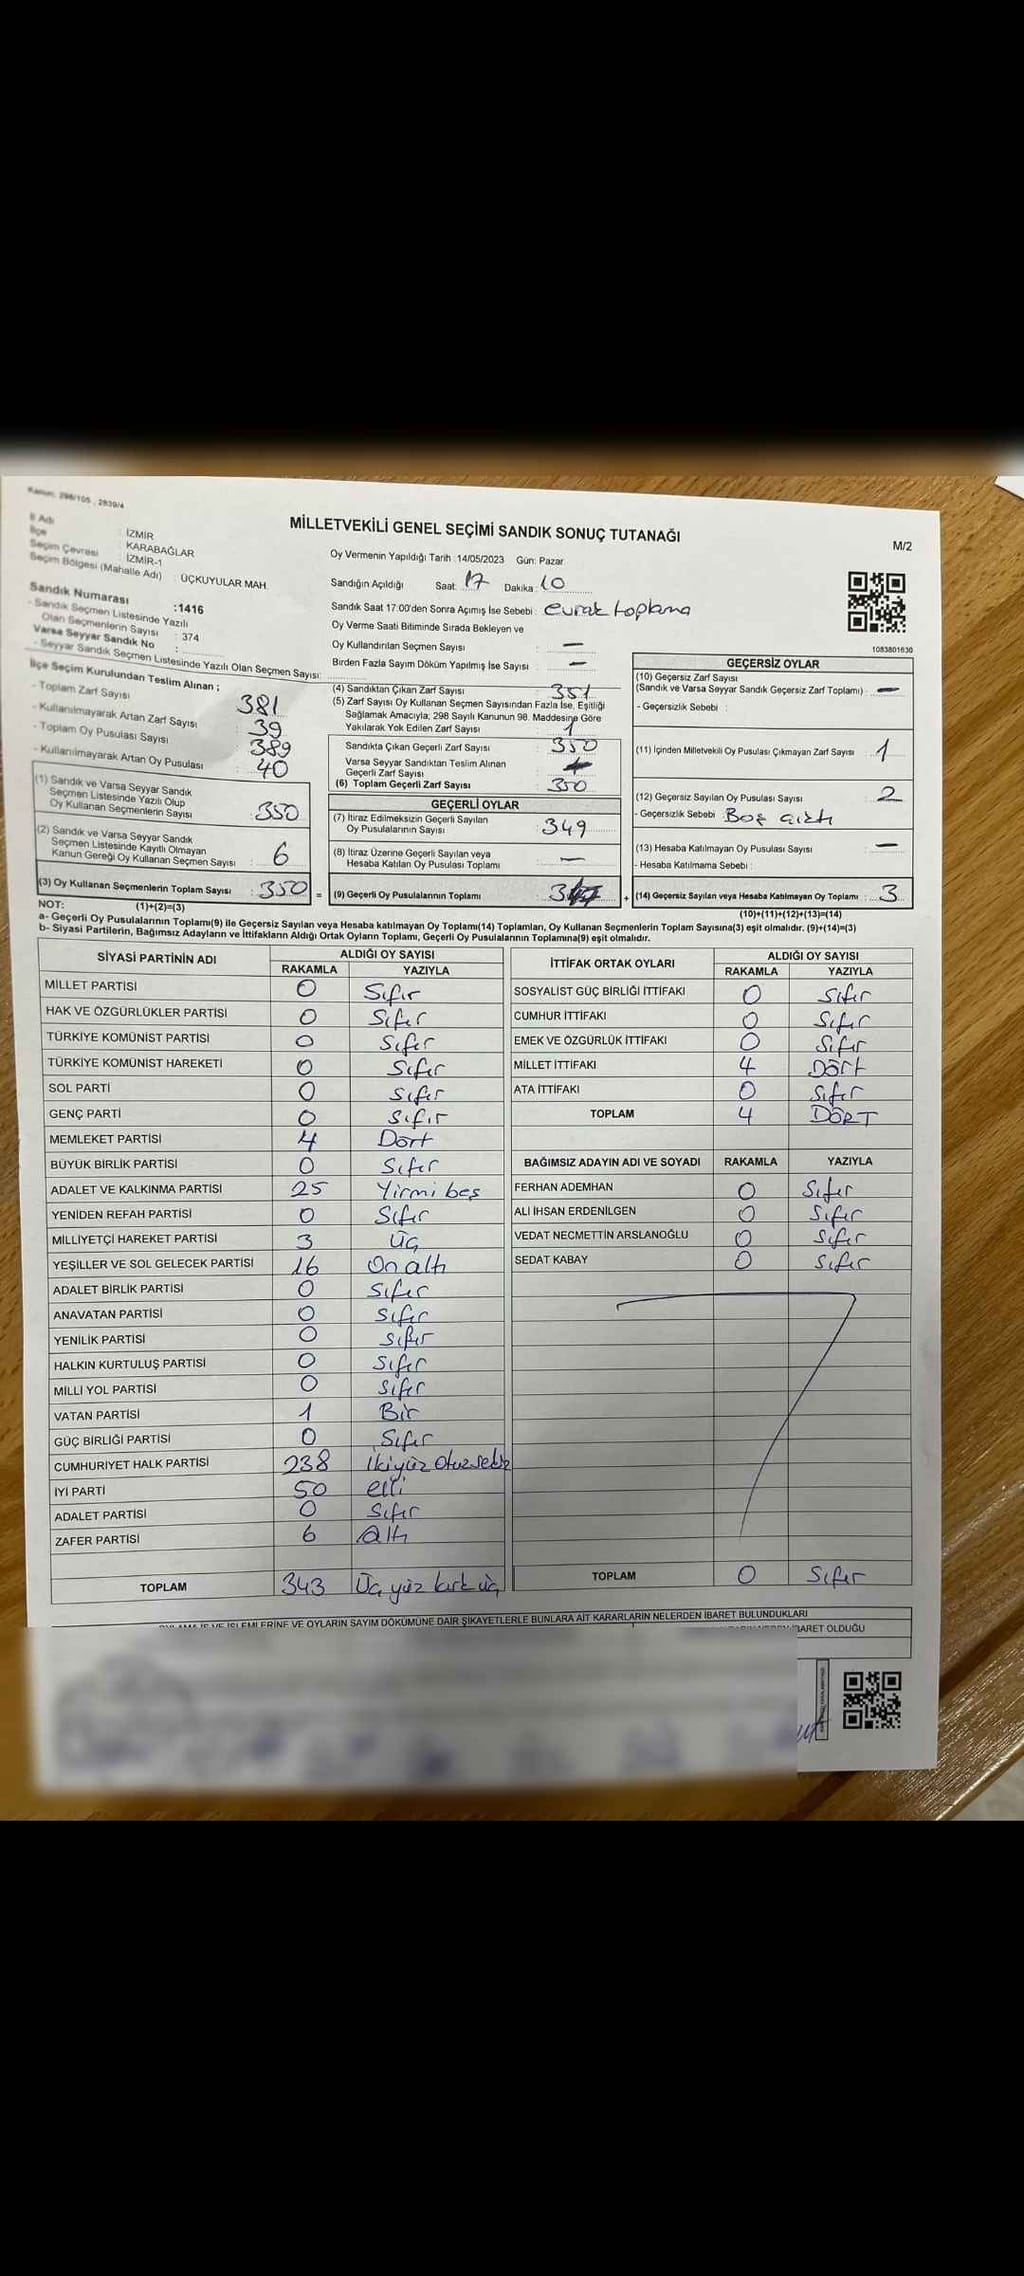 Kanun: 298/105 , 2839/4
MİLLETVEKİLİ GENEL SEÇİMİ SANDIK SONUÇ TUTANAĞI
M/2
İl Adı : İZMİR
İlçe : KARABAĞLAR
Seçim Çevresi : İZMİR-1
Seçim Bölgesi (Mahalle Adı) : ÜÇKUYULAR MAH.
Sandık Numarası :1416
- Sandık Seçmen Listesinde Yazılı
Olan Seçmenlerin Sayısı : 374
Varsa Seyyar Sandık No :
- Seyyar Sandık Seçmen Listesinde Yazılı Olan Seçmen Sayısı:
Oy Vermenin Yapıldığı Tarih :14/05/2023 Gün: Pazar
Sandığın Açıldığı Saat: 17 Dakika: 10
Sandık Saat 17.00'den Sonra Açımış İse Sebebi : evrak toplama
Oy Verme Saati Bitiminde Sırada Bekleyen ve
Oy Kullandırılan Seçmen Sayısı : —
Birden Fazla Sayım Döküm Yapılmış İse Sayısı : —
1083801630
İlçe Seçim Kurulundan Teslim Alınan ;
- Toplam Zarf Sayısı : 381
- Kullanılmayarak Artan Zarf Sayısı : 39
- Toplam Oy Pusulası Sayısı : 389
- Kullanılmayarak Artan Oy Pusulası : 40
(1) Sandık ve Varsa Seyyar Sandık
Seçmen Listesinde Yazılı Olup
Oy Kullanan Seçmenlerin Sayısı : 350
(2) Sandık ve Varsa Seyyar Sandık
Seçmen Listesinde Kayıtlı Olmayan
Kanun Gereği Oy Kullanan Seçmen Sayısı : 6
(3) Oy Kullanan Seçmenlerin Toplam Sayısı : 350 =
(1)+(2)=(3)
(4) Sandıktan Çıkan Zarf Sayısı : 351
(5) Zarf Sayısı Oy Kullanan Seçmen Sayısından Fazla İse, Eşitliği
Sağlamak Amacıyla, 298 Sayılı Kanunun 98. Maddesine Göre
Yakılarak Yok Edilen Zarf Sayısı : 1
Sandıkta Çıkan Geçerli Zarf Sayısı : 350
Varsa Seyyar Sandıktan Teslim Alınan
Geçerli Zarf Sayısı :
(6) Toplam Geçerli Zarf Sayısı : 350
GEÇERLİ OYLAR
(7) İtiraz Edilmeksizin Geçerli Sayılan
Oy Pusulalarının Sayısı : 349
(8) İtiraz Üzerine Geçerli Sayılan veya
Hesaba Katılan Oy Pusulası Toplamı : —
(9) Geçerli Oy Pusulalarının Toplamı : +
GEÇERSİZ OYLAR
(10) Geçersiz Zarf Sayısı
(Sandık ve Varsa Seyyar Sandık Geçersiz Zarf Toplamı) : —
- Geçersizlik Sebebi :
(11) İçinden Milletvekili Oy Pusulası Çıkmayan Zarf Sayısı : 1
(12) Geçersiz Sayılan Oy Pusulası Sayısı : 2
- Geçersizlik Sebebi : Boş çıktı
(13) Hesaba Katılmayan Oy Pusulası Sayısı : —
- Hesaba Katılmama Sebebi :
(14) Geçersiz Sayılan veya Hesaba Katılmayan Oy Toplamı : 3
(10)+(11)+(12)+(13)=(14)
NOT:
a- Geçerli Oy Pusulalarının Toplamı(9) ile Geçersiz Sayılan veya Hesaba katılmayan Oy Toplamı(14) Toplamları, Oy Kullanan Seçmenlerin Toplam Sayısına(3) eşit olmalıdır. (9)+(14)=(3)
b- Siyasi Partilerin, Bağımsız Adayların ve İttifakların Aldığı Ortak Oyların Toplamı, Geçerli Oy Pusulalarının Toplamına(9) eşit olmalıdır.
SİYASİ PARTİNİN ADI ALDIĞI OY SAYISI
RAKAMLA YAZIYLA
MİLLET PARTİSİ 0 Sıfır
HAK VE ÖZGÜRLÜKLER PARTİSİ 0 Sıfır
TÜRKİYE KOMÜNİST PARTİSİ 0 Sıfır
TÜRKİYE KOMÜNİST HAREKETİ 0 Sıfır
SOL PARTİ 0 Sıfır
GENÇ PARTİ 0 Sıfır
MEMLEKET PARTİSİ 4 Dört
BÜYÜK BİRLİK PARTİSİ 0 Sıfır
ADALET VE KALKINMA PARTİSİ 25 Yirmi beş
YENİDEN REFAH PARTİSİ 0 Sıfır
MİLLİYETÇİ HAREKET PARTİSİ 3 Üç
YEŞİLLER VE SOL GELECEK PARTİSİ 16 On altı
ADALET BİRLİK PARTİSİ 0 Sıfır
ANAVATAN PARTİSİ 0 Sıfır
YENİLİK PARTİSİ 0 Sıfır
HALKIN KURTULUŞ PARTİSİ 0 Sıfır
MİLLİ YOL PARTİSİ 0 Sıfır
VATAN PARTİSİ 1 Bir
GÜÇ BİRLİĞİ PARTİSİ 0 Sıfır
CUMHURİYET HALK PARTİSİ 238 İkiyüz otuzsekiz
İYİ PARTİ 50 elli
ADALET PARTİSİ 0 Sıfır
ZAFER PARTİSİ 6 Altı
TOPLAM 343 Üç yüz kırk üç
İTTİFAK ORTAK OYLARI ALDIĞI OY SAYISI
RAKAMLA YAZIYLA
SOSYALİST GÜÇ BİRLİĞİ İTTİFAKI 0 Sıfır
CUMHUR İTTİFAKI 0 Sıfır
EMEK VE ÖZGÜRLÜK İTTİFAKI 0 Sıfır
MİLLET İTTİFAKI 4 Dört
ATA İTTİFAKI 0 Sıfır
TOPLAM 4 DÖRT
BAĞIMSIZ ADAYIN ADI VE SOYADI RAKAMLA YAZIYLA
FERHAN ADEMHAN 0 Sıfır
ALİ İHSAN ERDENİLGEN 0 Sıfır
VEDAT NECMETTİN ARSLANOĞLU 0 Sıfır
SEDAT KABAY 0 Sıfır
TOPLAM 0 Sıfır
İŞLEMLERİNE VE OYLARIN SAYIM DÖKÜMÜNE DAİR ŞİKAYETLERLE BUNLARA AİT KARARLARIN NELERDEN İBARET BULUNDUKLARI
İBARET OLDUĞU